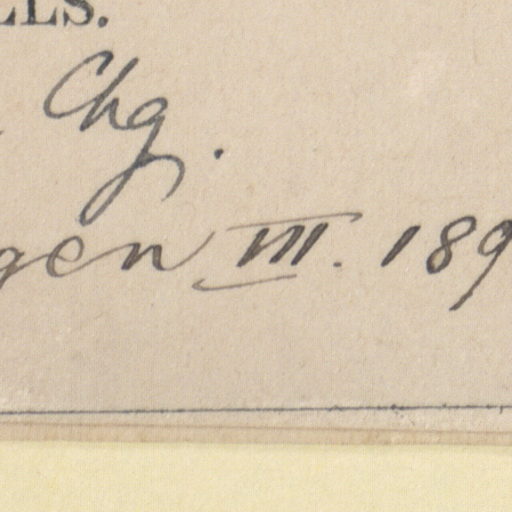 LLS.
Chg.
gen III. 189